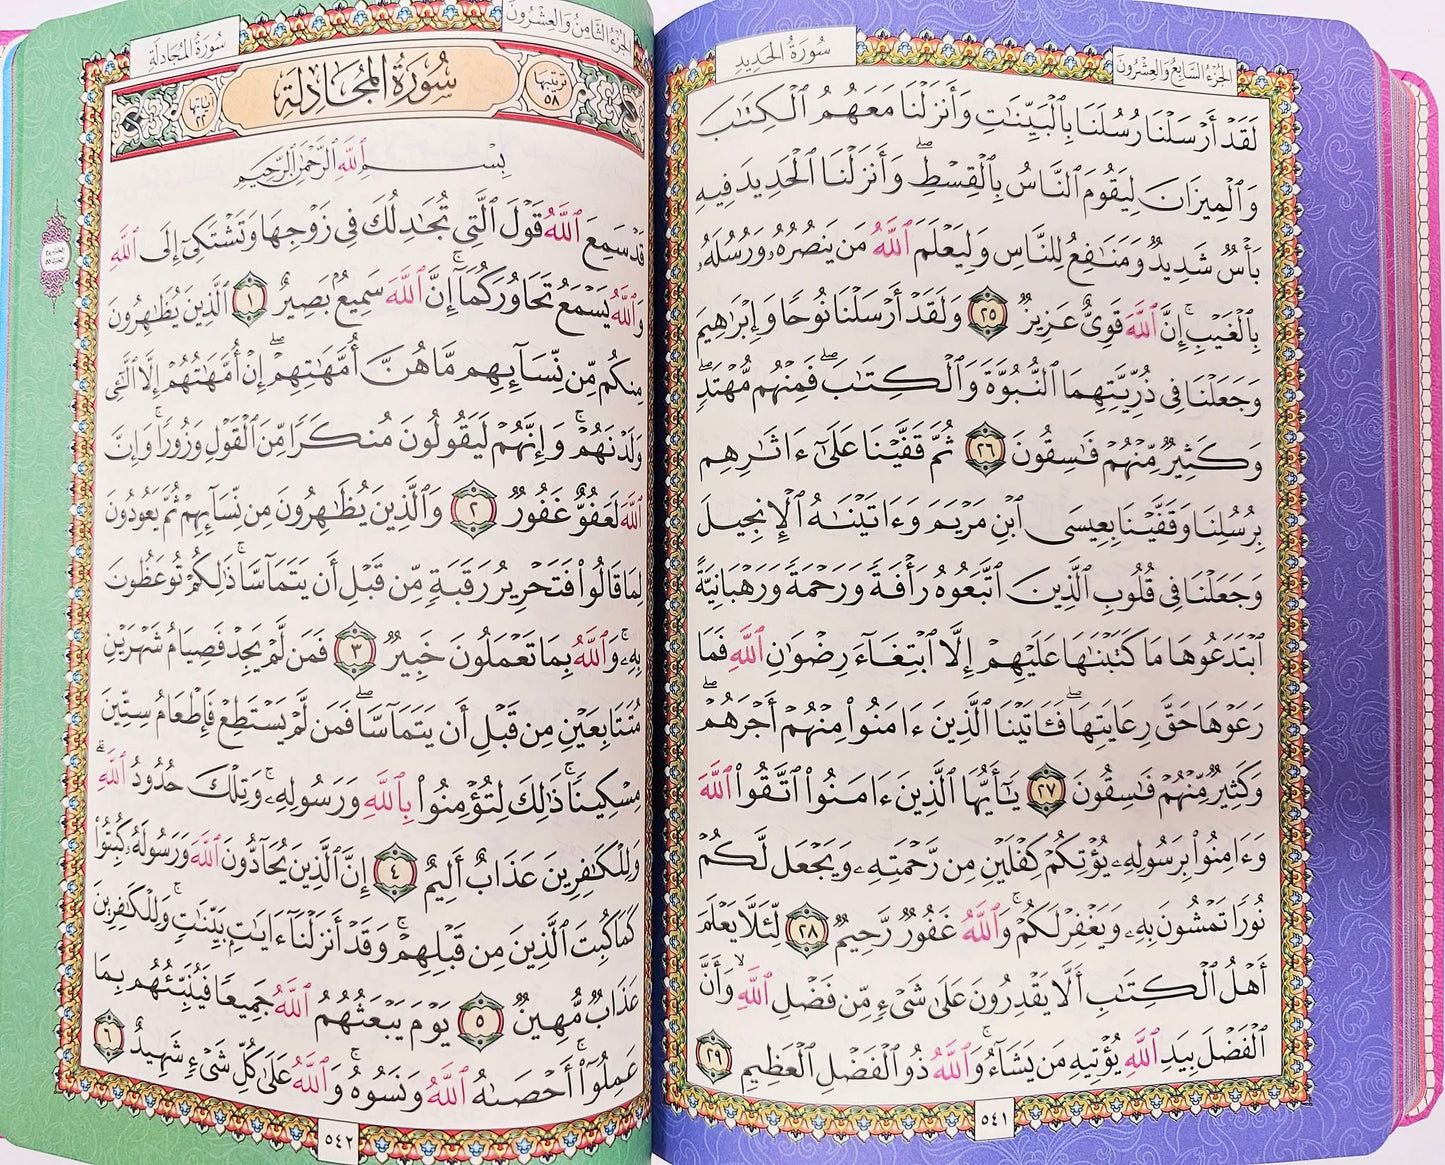 سُورَةُ الحَدِيدِ
الجُزْءُ السَّابِعُ وَالعِشْرُونَ
لَقَدْ أَرْسَلْنَا رُسُلَنَا بِالْبَيِّنَاتِ وَأَنزَلْنَا مَعَهُمُ الْكِتَابَ
وَالْمِيزَانَ لِيَقُومَ النَّاسُ بِالْقِسْطِ ۖ وَأَنزَلْنَا الْحَدِيدَ فِيهِ
بَأْسٌ شَدِيدٌ وَمَنَافِعُ لِلنَّاسِ وَلِيَعْلَمَ اللَّهُ مَن يَنصُرُهُۥ وَرُسُلَهُۥ
بِالْغَيْبِ ۚ إِنَّ اللَّهَ قَوِيٌّ عَزِيزٌ ٢٥ وَلَقَدْ أَرْسَلْنَا نُوحًا وَإِبْرَاهِيمَ
وَجَعَلْنَا فِي ذُرِّيَّتِهِمَا النُّبُوَّةَ وَالْكِتَابَ ۖ فَمِنْهُم مُّهْتَدٍ ۖ
وَكَثِيرٌ مِّنْهُمْ فَاسِقُونَ ٢٦ ثُمَّ قَفَّيْنَا عَلَىٰٓ ءَاثَارِهِم
بِرُسُلِنَا وَقَفَّيْنَا بِعِيسَى ابْنِ مَرْيَمَ وَءَاتَيْنَاهُ الْإِنجِيلَ
وَجَعَلْنَا فِي قُلُوبِ الَّذِينَ اتَّبَعُوهُ رَأْفَةً وَرَحْمَةً وَرَهْبَانِيَّةً
ابْتَدَعُوهَا مَا كَتَبْنَاهَا عَلَيْهِمْ إِلَّا ابْتِغَآءَ رِضْوَانِ اللَّهِ فَمَا
رَعَوْهَا حَقَّ رِعَايَتِهَا ۖ فَـَٔاتَيْنَا الَّذِينَ ءَامَنُوا۟ مِنْهُمْ أَجْرَهُمْ ۖ
وَكَثِيرٌ مِّنْهُمْ فَاسِقُونَ ٢٧ يَٰٓأَيُّهَا الَّذِينَ ءَامَنُوا۟ اتَّقُوا۟ اللَّهَ
وَءَامِنُوا۟ بِرَسُولِهِۦ يُؤْتِكُمْ كِفْلَيْنِ مِن رَّحْمَتِهِۦ وَيَجْعَل لَّكُمْ
نُورًا تَمْشُونَ بِهِۦ وَيَغْفِرْ لَكُمْ ۚ وَاللَّهُ غَفُورٌ رَّحِيمٌ ٢٨ لِّئَلَّا يَعْلَمَ
أَهْلُ الْكِتَابِ أَلَّا يَقْدِرُونَ عَلَىٰ شَيْءٍ مِّن فَضْلِ اللَّهِ ۙ وَأَنَّ
الْفَضْلَ بِيَدِ اللَّهِ يُؤْتِيهِ مَن يَشَآءُ ۚ وَاللَّهُ ذُو الْفَضْلِ الْعَظِيمِ ٢٩
٥٤١
الجُزْءُ الثَّامِنُ وَالعِشْرُونَ
سُورَةُ المُجَادلَةِ
ترتيبها ٥٨
سُورَةُ المُجَادلَةِ
آياتها ٢٢
بِسْمِ اللَّهِ الرَّحْمَٰنِ الرَّحِيمِ
قَدْ سَمِعَ اللَّهُ قَوْلَ الَّتِي تُجَادِلُكَ فِي زَوْجِهَا وَتَشْتَكِيٓ إِلَى اللَّهِ
وَاللَّهُ يَسْمَعُ تَحَاوُرَكُمَآ ۚ إِنَّ اللَّهَ سَمِيعٌۢ بَصِيرٌ ١ الَّذِينَ يُظَاهِرُونَ
مِنكُم مِّن نِّسَآئِهِم مَّا هُنَّ أُمَّهَاتِهِمْ ۖ إِنْ أُمَّهَاتُهُمْ إِلَّا الَّٰٓـِٔي
وَلَدْنَهُمْ ۚ وَإِنَّهُمْ لَيَقُولُونَ مُنكَرًا مِّنَ الْقَوْلِ وَزُورًا ۚ وَإِنَّ
اللَّهَ لَعَفُوٌّ غَفُورٌ ٢ وَالَّذِينَ يُظَاهِرُونَ مِن نِّسَآئِهِمْ ثُمَّ يَعُودُونَ
لِمَا قَالُوا۟ فَتَحْرِيرُ رَقَبَةٍ مِّن قَبْلِ أَن يَتَمَآسَّا ۚ ذَٰلِكُمْ تُوعَظُونَ
بِهِۦ ۚ وَاللَّهُ بِمَا تَعْمَلُونَ خَبِيرٌ ٣ فَمَن لَّمْ يَجِدْ فَصِيَامُ شَهْرَيْنِ
مُتَتَابِعَيْنِ مِن قَبْلِ أَن يَتَمَآسَّا ۖ فَمَن لَّمْ يَسْتَطِعْ فَإِطْعَامُ سِتِّينَ
مِسْكِينًا ۚ ذَٰلِكَ لِتُؤْمِنُوا۟ بِاللَّهِ وَرَسُولِهِۦ ۚ وَتِلْكَ حُدُودُ اللَّهِ ۗ
وَلِلْكَافِرِينَ عَذَابٌ أَلِيمٌ ٤ إِنَّ الَّذِينَ يُحَآدُّونَ اللَّهَ وَرَسُولَهُۥ كُبِتُوا۟
كَمَا كُبِتَ الَّذِينَ مِن قَبْلِهِمْ ۚ وَقَدْ أَنزَلْنَآ ءَايَاتٍۭ بَيِّنَاتٍ ۚ وَلِلْكَافِرِينَ
عَذَابٌ مُّهِينٌ ٥ يَوْمَ يَبْعَثُهُمُ اللَّهُ جَمِيعًا فَيُنَبِّئُهُم بِمَا
عَمِلُوٓا۟ ۚ أَحْصَاهُ اللَّهُ وَنَسُوهُ ۚ وَاللَّهُ عَلَىٰ كُلِّ شَيْءٍ شَهِيدٌ ٦
٥٤٢